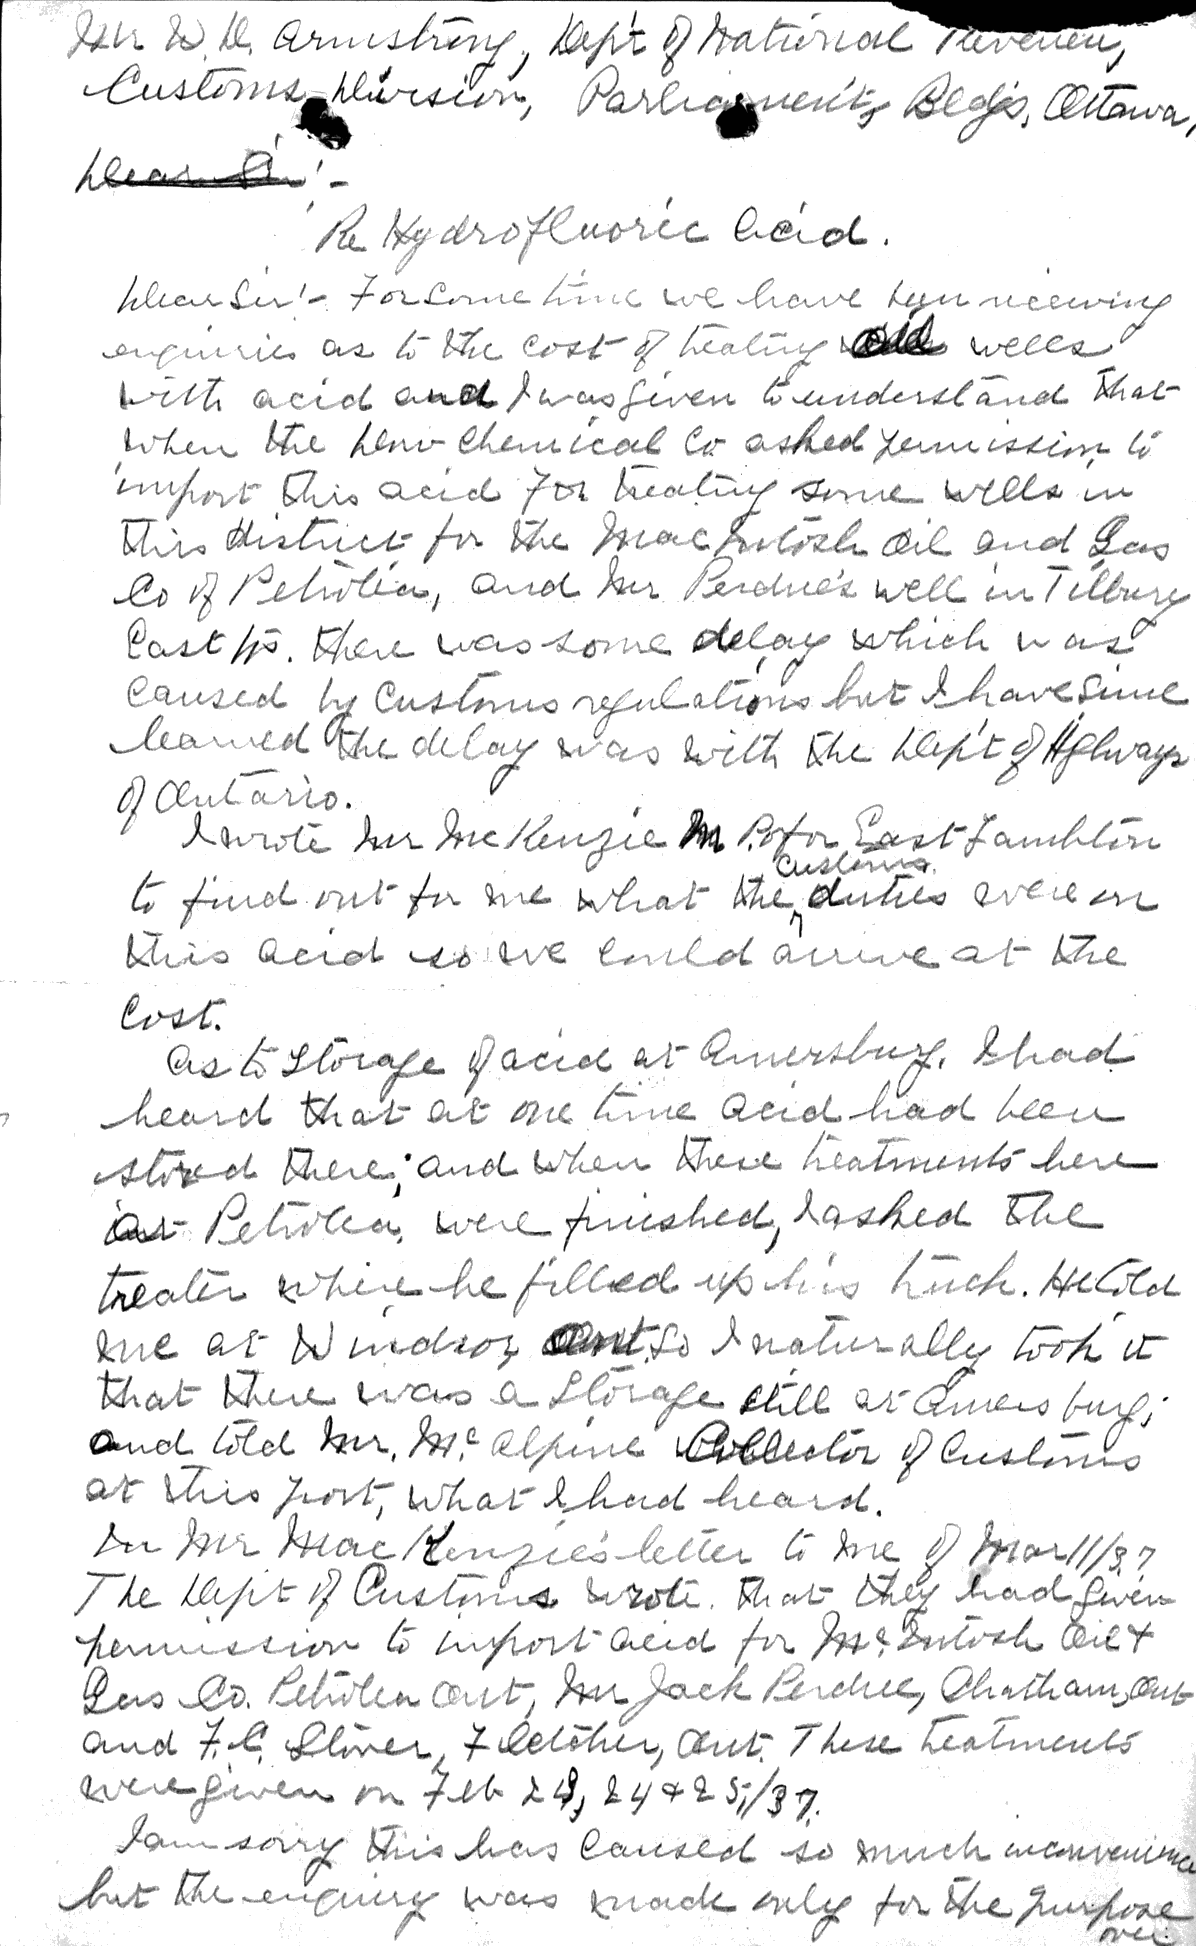 Mr W. D. Armstrong, Dep't of National Revenue,
Customs Division, Parliament, Bldgs, Ottawa,
Dear Sir!-
Re Hydrofluoric Acid.
Dear Sir!- For some time we have been receiving
enquiries as to the cost of treating wells
with acid and I was given to understand that
when the Dow Chemical Co asked permission to
import this acid for treating some wells in
this district for the MacIntosh Oil and Gas
Co of Petrolia, and Mr Perdue's well in Tilbury
East Tp. there was some delay which was
caused by Customs regulations but I have since
learned the delay was with the Dep't of Hghways
of Ontario.
I wrote Mr McKenzie M.P. for East Lambton
to find out for me what the customs duties were on
this acid so we could arrive at the
cost.
As to storage of acid at Amersburg, I had
heard that at one time acid had been
stored there; and when these treatments here
at Petrolea, were finished, I asked the
treater where he filled up his truck. He told
me at Windsor, Ont. So I naturally took it
that there was a storage still at Amersburg;
and told Mr. McAlpine Collector of Customs
at this port, what I had heard.
In Mr MacKenzie's letter to me of Mar 11/37
The Dep't of Customs wrote. that they had given
permission to import acid for McIntosh Oil &
Gas Co. Petrolea Ont, Mr Jack Perdue, Chatham, Ont
and F. C. Stover, Fletcher, Ont. These treatments
were given on Feb 23, 24 & 25,/37.
I am sorry this has caused so much inconvenience
but the enquiry was made only for the purpose
over